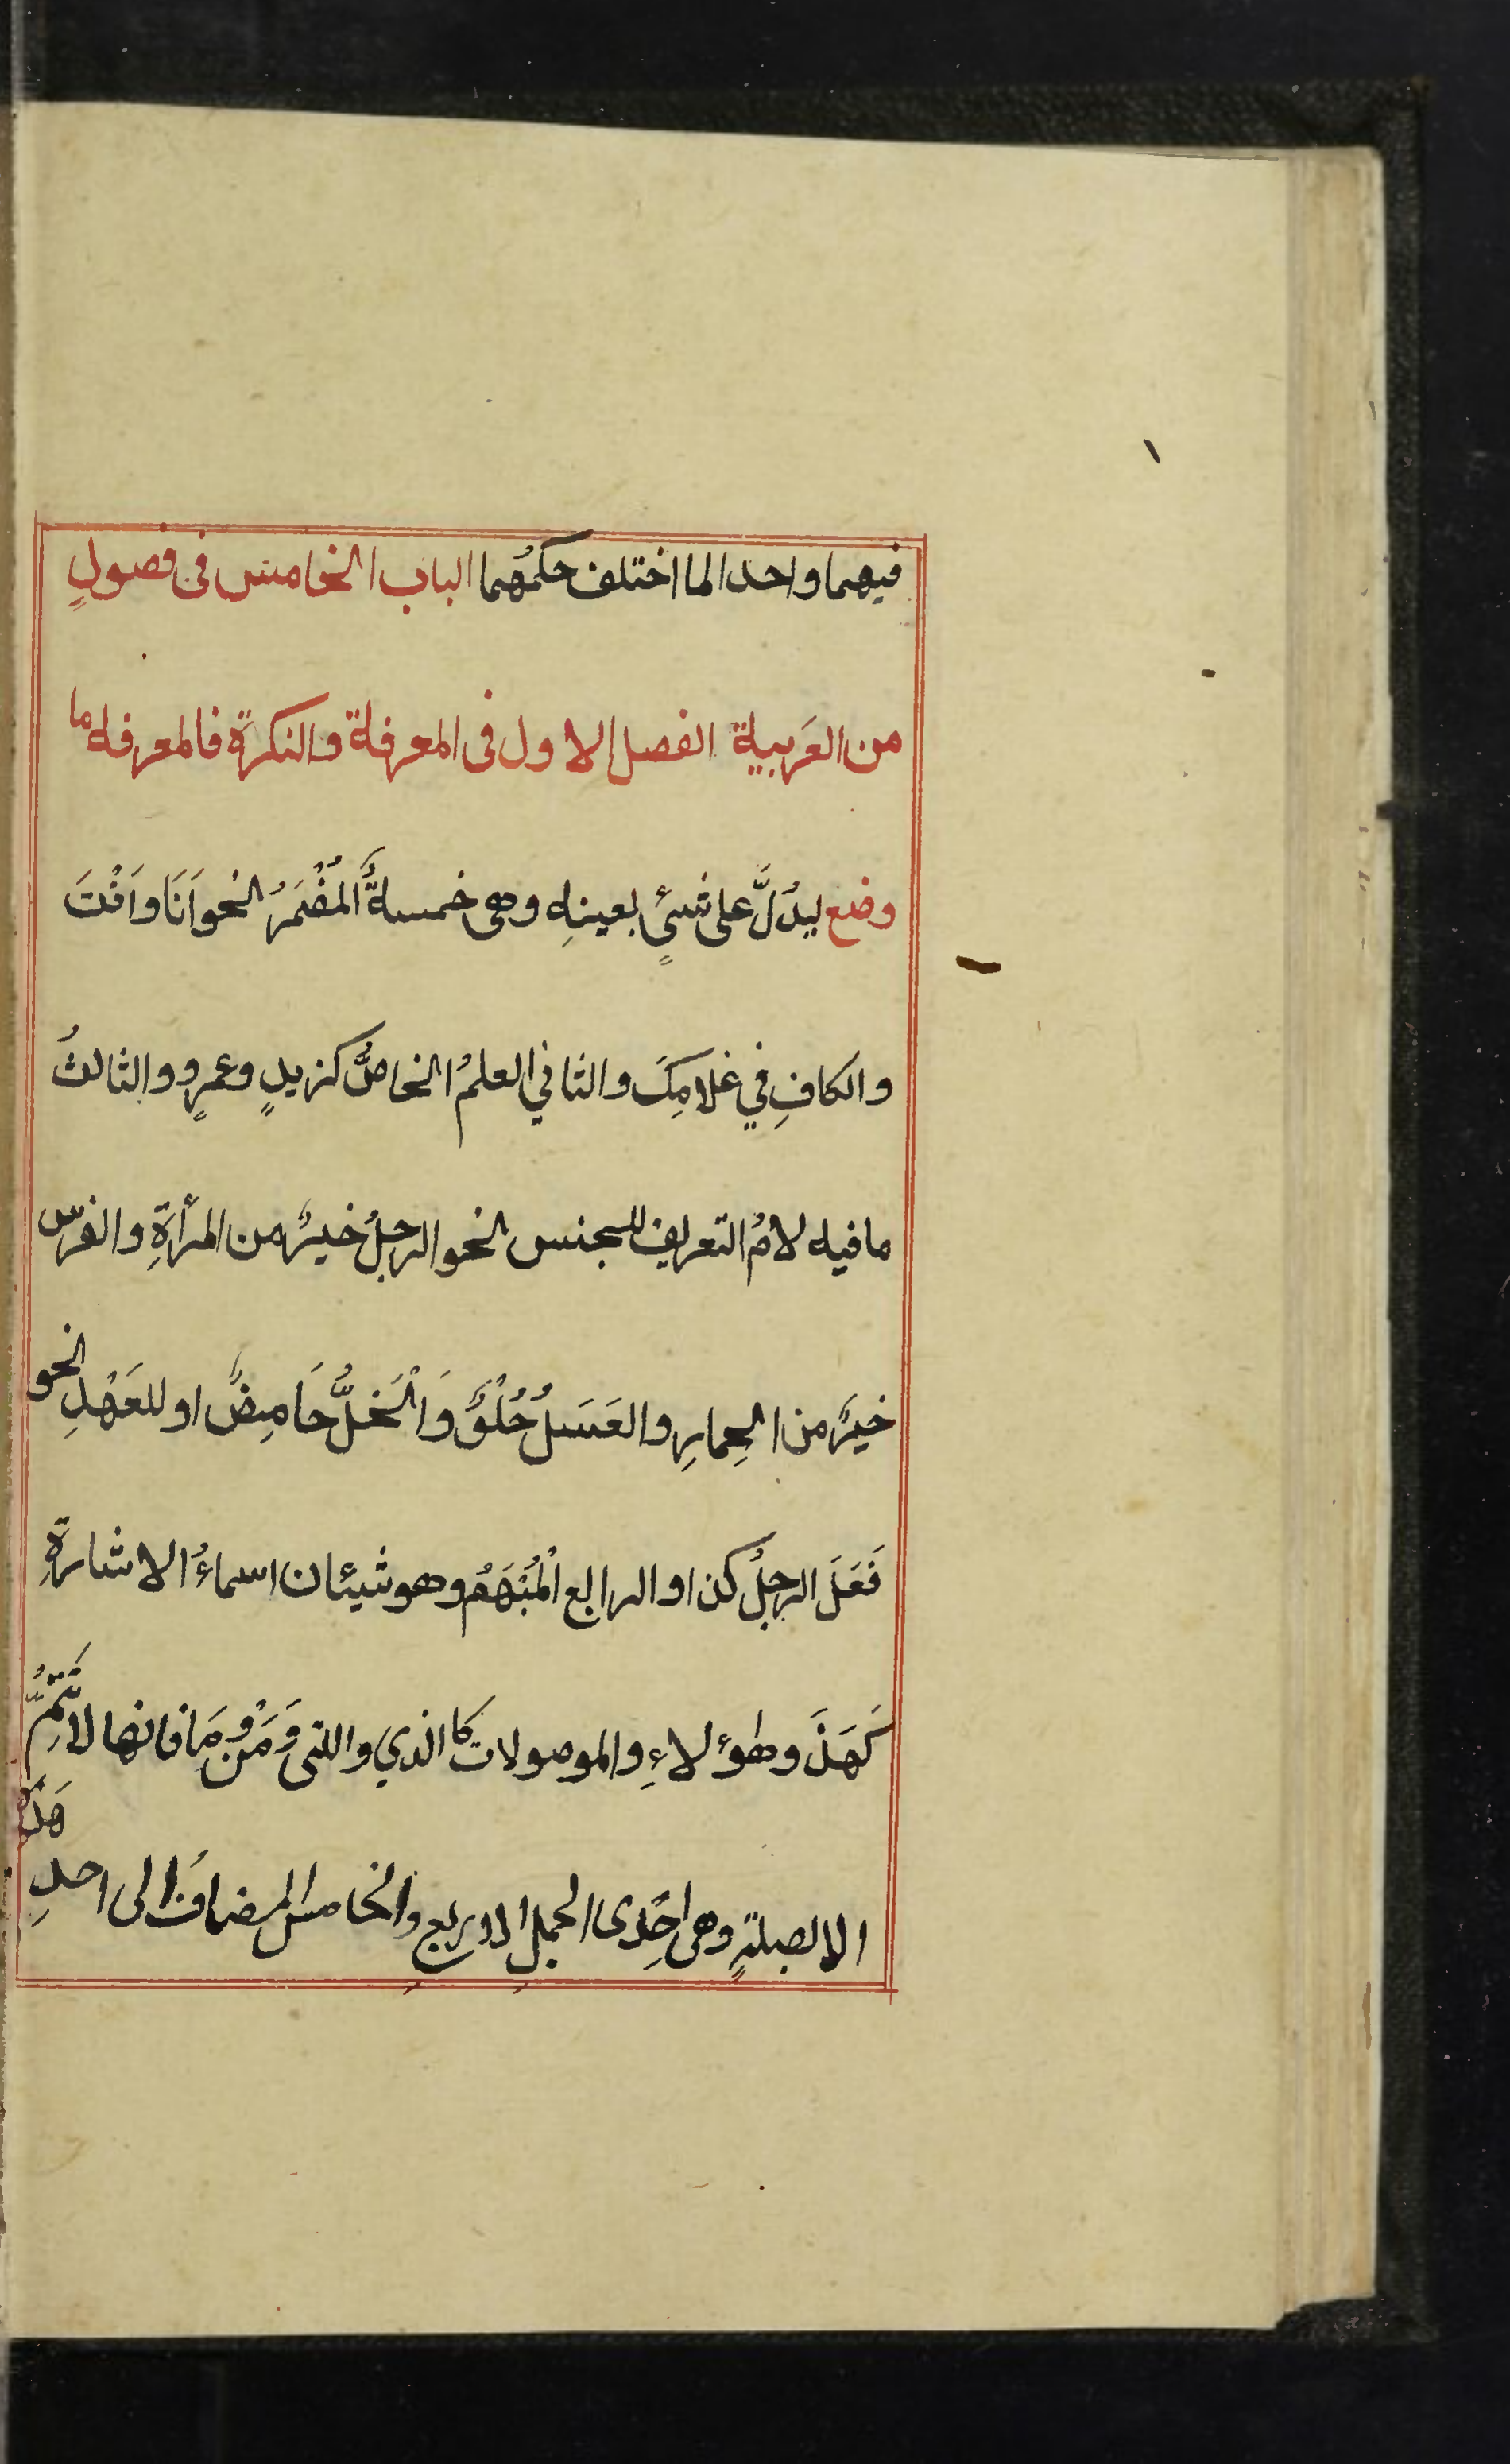 فيهما واحدا لما اختلف حكمُهما الباب الخامس فى فصولٍ
من العَربية الفصل الاول فى المعرفة والنكرة فالمعرفة ما
وضع ليدُلَّ على شيئٍ بعينهِ وهى خمسةٌ اَلْمُضْمَرُ نحو اَنَا واَنْتَ
والكافِ في غلامِكَ والثاني العلمُ الخاصُّ كزيدٍ وعمرٍو والثالثُ
مافيه لامُ التعريف للجنس نحو الرجلُ خيرٌ من المرأةِ والفرس
خيرٌ من الحِمارِ والعَسَلُ حُلْوٌ وَالْخَلُّ حَامِضٌ او للعَهْدِ نحو
فَعَلَ الرجلُ كذا والرابع اَلْمُبْهَمُ وهو شيئان اسماءُ الاشارةِ
كَهَذَا وهؤلاءِ والموصولات كالذي واللتى وَمَنْ وَمَا فانها لا تَتِمُّ
الا بصلةٍ وهى اِحْدى الجملِ الاربعِ والخامس المضافُ الى احدِ
هَذِهِ